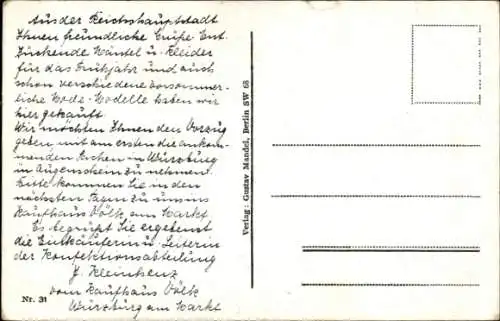 Aus der Reichshauptstadt
Ihnen freundliche Grüße. Ent.
zückende Mäntel u. Kleider
für das Frühjahr und auch
schon verschiedene vorsommer-
liche Mode-Modelle haben wir
hier gekauft.
Wir möchten Ihnen den Vorzug
geben, mit am ersten die ankom-
menden Sachen in Würzburg
in Augenschein zu nehmen.
Bitte kommen Sie in den
nächsten Tagen zu uns ins
Kaufhaus Völk am Markt
Es begrüßt Sie ergebenst
die Einkäuferin u. Leiterin
der Konfektionsabteilung
J. Kleinhenz
vom Kaufhaus Völk
Würzburg am Markt
Nr. 31
Verlag: Gustav Mandel, Berlin SW 68